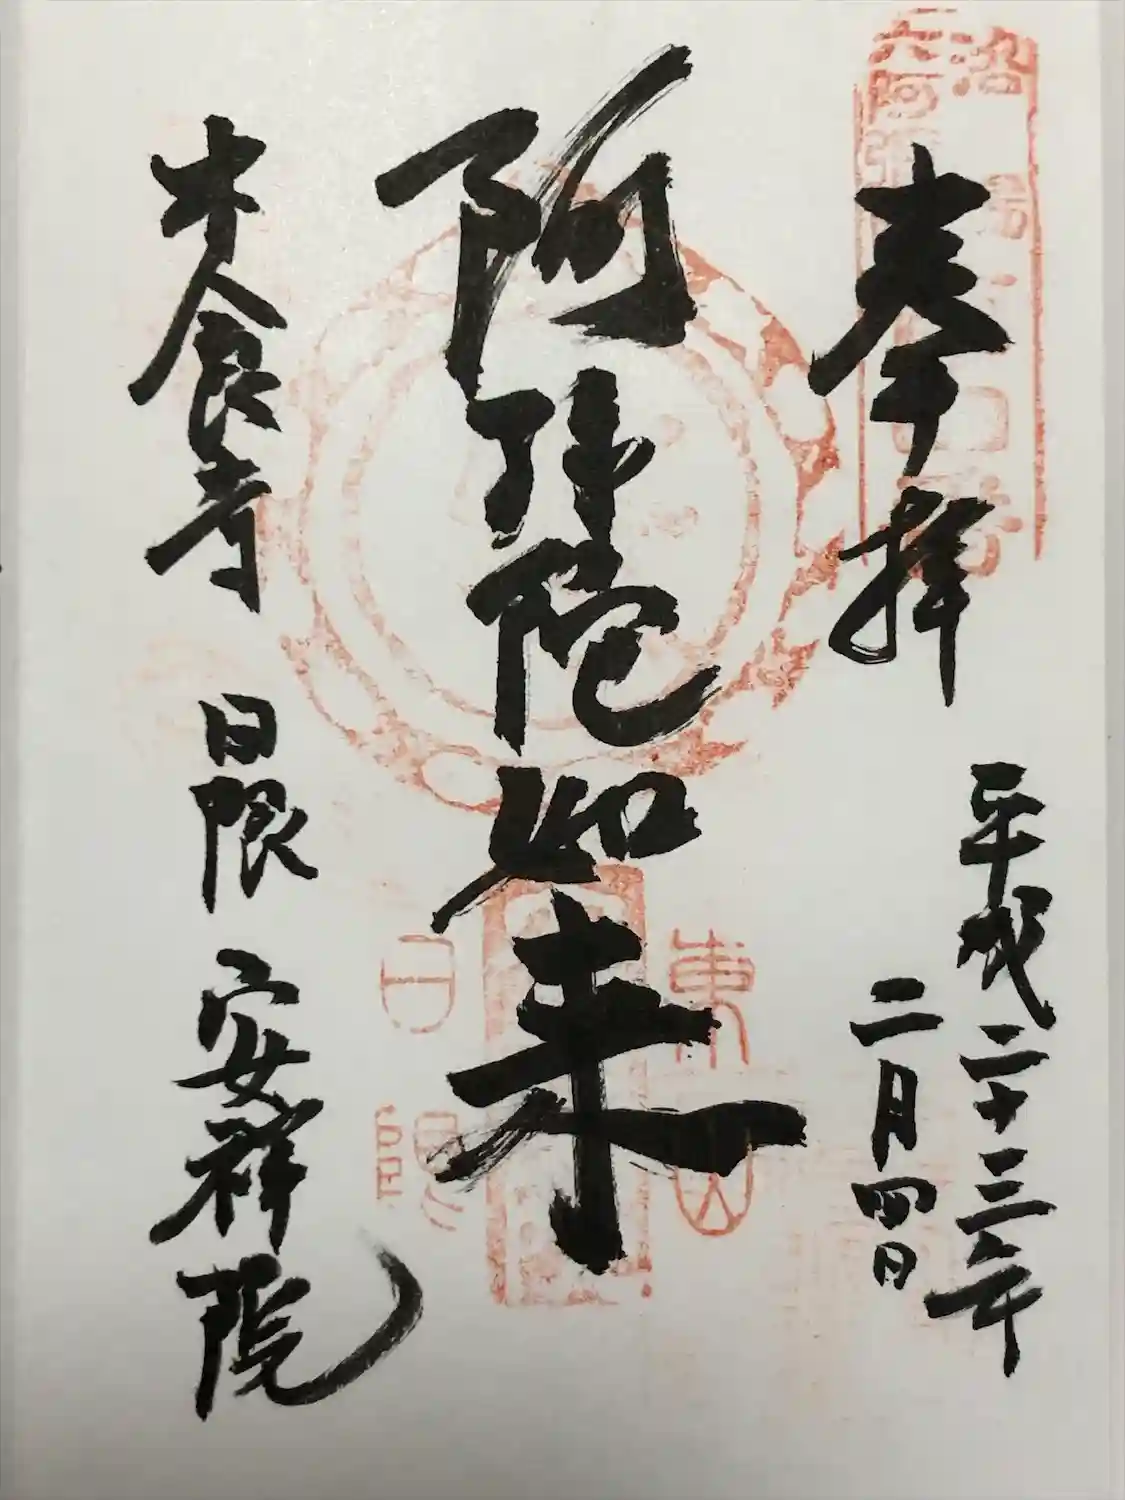 奉拝
平成二十三年
二月四日
阿弥陀如来
木食寺 日限 安祥院
洛
六阿弥
東山
日